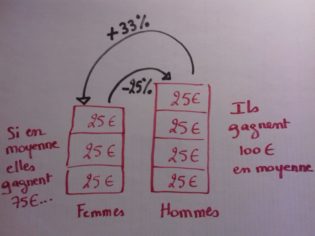 +33%
-25%
25€
25€
25€
25€
25€
25€
25€
Si en
moyenne
elles
gagnent
75€...
Ils
gagnent
100€
en moyenne
Femmes
Hommes